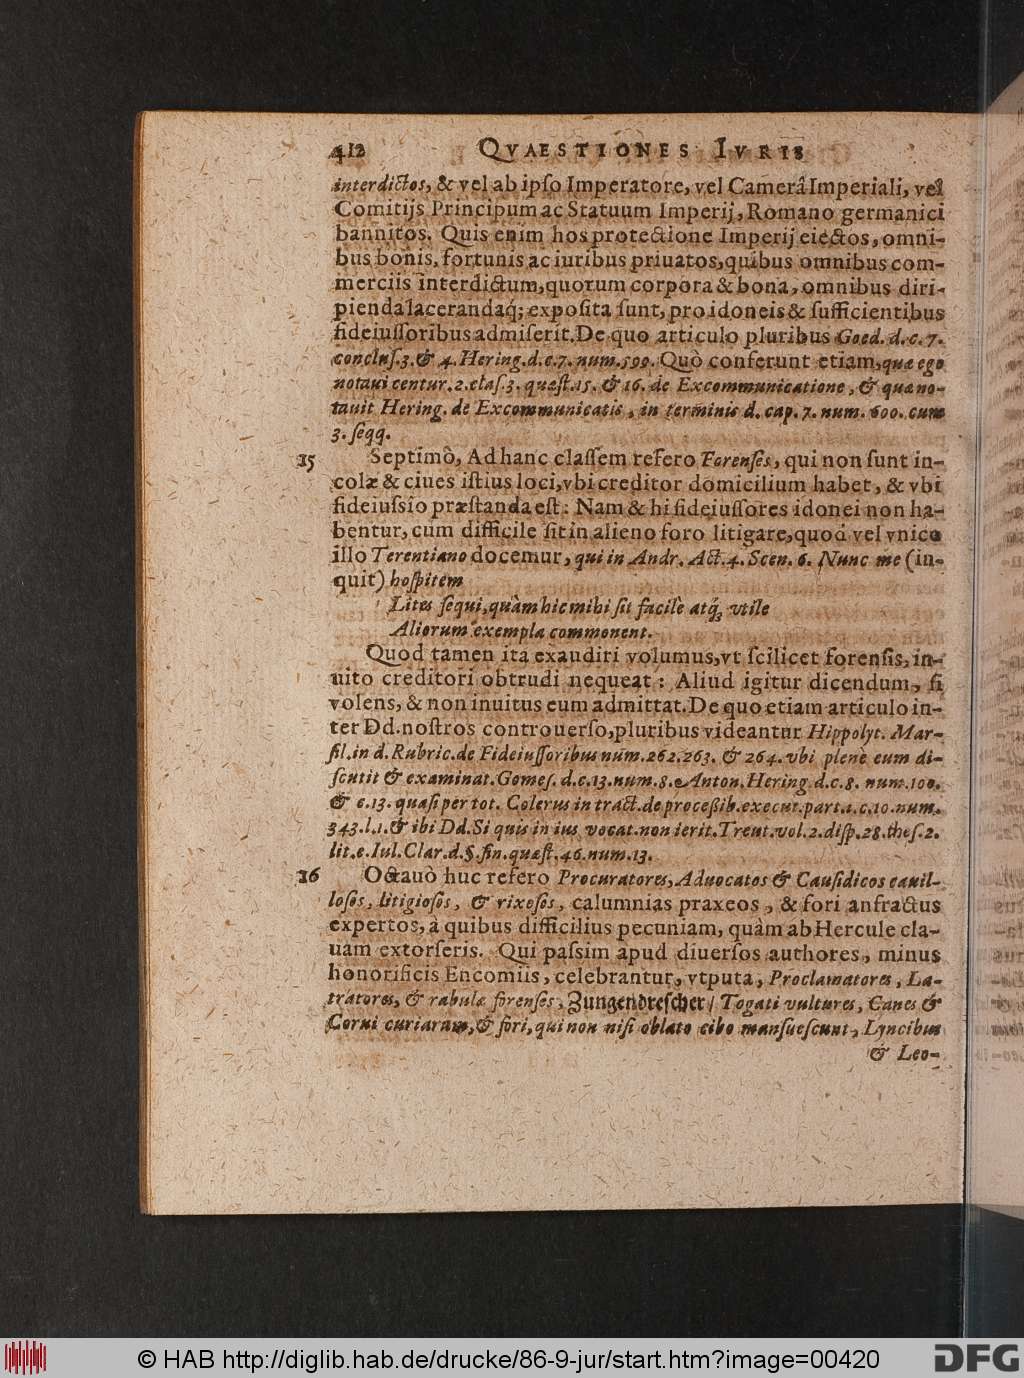 412 QVAESTIONES IVRIS
interdictos, & vel ab ipſo Imperatore, vel Camerâ Imperiali, vel
Comitijs Principum ac Statuum Imperij, Romano germanici
bannitos. Quis enim hos protectione Imperij eiectos, omni-
bus bonis, fortunis ac iuribus priuatos, quibus omnibus com-
merciis interdictum, quorum corpora & bona, omnibus diri-
pienda lacerandaq́; expoſita ſunt, pro idoneis & ſufficientibus
fideiuſſoribus admiſerit. De quo articulo pluribus Goed. d. c. 7.
concluſ. 3. & 4. Hering. d. c. 7. num. 599. Quò conferunt etiam, quæ ego
notaui centur. 2. claſ. 3. quæſt. 15. & 16. de Excommunicatione, & qua no-
tauit Hering. de Excommunicatis, in terminis d. cap. 7. num. 600. cum
3. ſeqq.
15 Septimò, Ad hanc claſſem refero Forenſes, qui non ſunt in-
colæ & ciues iſtius loci, vbi creditor domicilium habet, & vbi
fideiuſsio præſtanda eſt: Nam & hi fideiuſſores idonei non ha-
bentur, cum difficile ſit in alieno foro litigare, quod vel vnico
illo Terentiano docemur, qui in Andr. Act. 4. Scen. 6. Nunc me (in-
quit) hoſpitem
Lites ſequi, quàm hic mihi ſit facilè atq́; vtile
Aliorum exempla commonent.
Quod tamen ita exaudiri volumus, vt ſcilicet forenſis, in-
uito creditori obtrudi nequeat: Aliud igitur dicendum, ſi
volens, & non inuitus eum admittat. De quo etiam articulo in-
ter Dd. noſtros controuerſo, pluribus videantur Hippolyt. Mar-
ſil. in d. Rubric. de Fideiuſſoribus num. 262. 263. & 264. vbi plenè eum di-
ſcutit & examinat. Gomeſ. d. c. 13. num. 8. Anton. Hering. d. c. 8. num. 100.
& c. 13. quaſi per tot. Colerus in tract. de proceßib. execut. part. 1. c. 10. num.
343. l. 1. & ibi Dd. Si quis in ius vocat. non ierit. Treut. vol. 2. diſp. 28. theſ. 2.
lit. e. Iul. Clar. d. §. fin. quæſt. 46. num. 13.
16 Octauò huc refero Procuratores, Aduocatos & Cauſidicos cauil-
loſos, litigioſos, & rixoſos, calumnias praxeos, & fori anfractus
expertos, à quibus difficilius pecuniam, quàm ab Hercule cla-
uam extorſeris. Qui paſsim apud diuerſos authores, minus
honorificis Encomiis, celebrantur, vtputa, Proclamatores, La-
tratores, & rabulæ forenſes, Zungendreſcher / Togati vultures, Canes &
Corui curiarum, & fori, qui non niſi oblato cibo manſueſcunt, Lyncibus
& Leo-
© HAB http://diglib.hab.de/drucke/86-9-jur/start.htm?image=00420 DFG